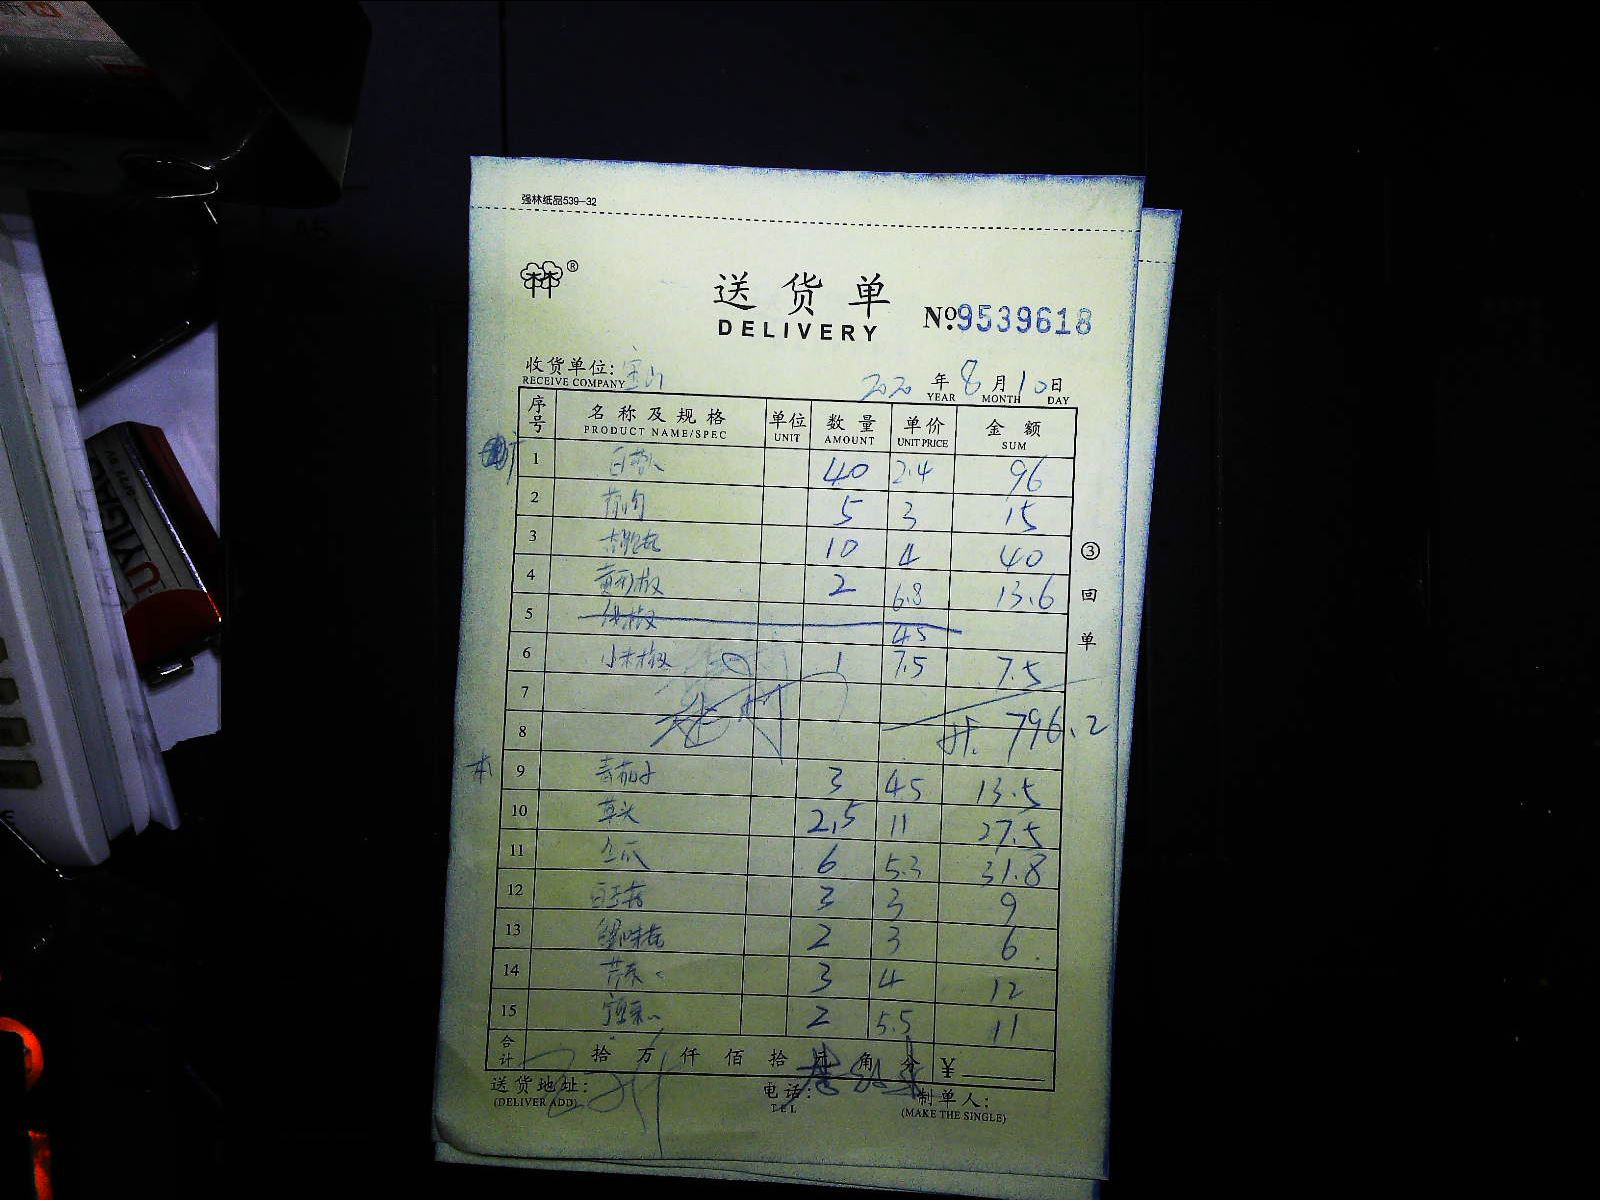 强林纸品539-32
®
送货单
DELIVERY
No.9539618
收货单位: 宝山
RECEIVE COMPANY
2020 年 8 月 10 日
YEAR MONTH DAY
序号 名称及规格 单位 数量 单价 金额
PRODUCT NAME/SPEC UNIT AMOUNT UNIT PRICE SUM
1 40 2.4 96
2 5 3 15
3 10 4 40
4 黄彩椒 2 6.8 13.6
5 45
6 小米椒 1 7.5 7.5
7
8 796.2
本
9 青茄子 3 45 13.5
10 草头 2.5 11 27.5
11 6 5.3 31.8
12 3 3 9
13 蟹味菇 2 3 6
14 3 4 12
15 2 5.5 11
合计 拾 万 仟 佰 拾 元 角 分 ¥
送货地址: 电话: 制单人:
(DELIVER ADD) TEL (MAKE THE SINGLE)
③
回
单
UYIGAO